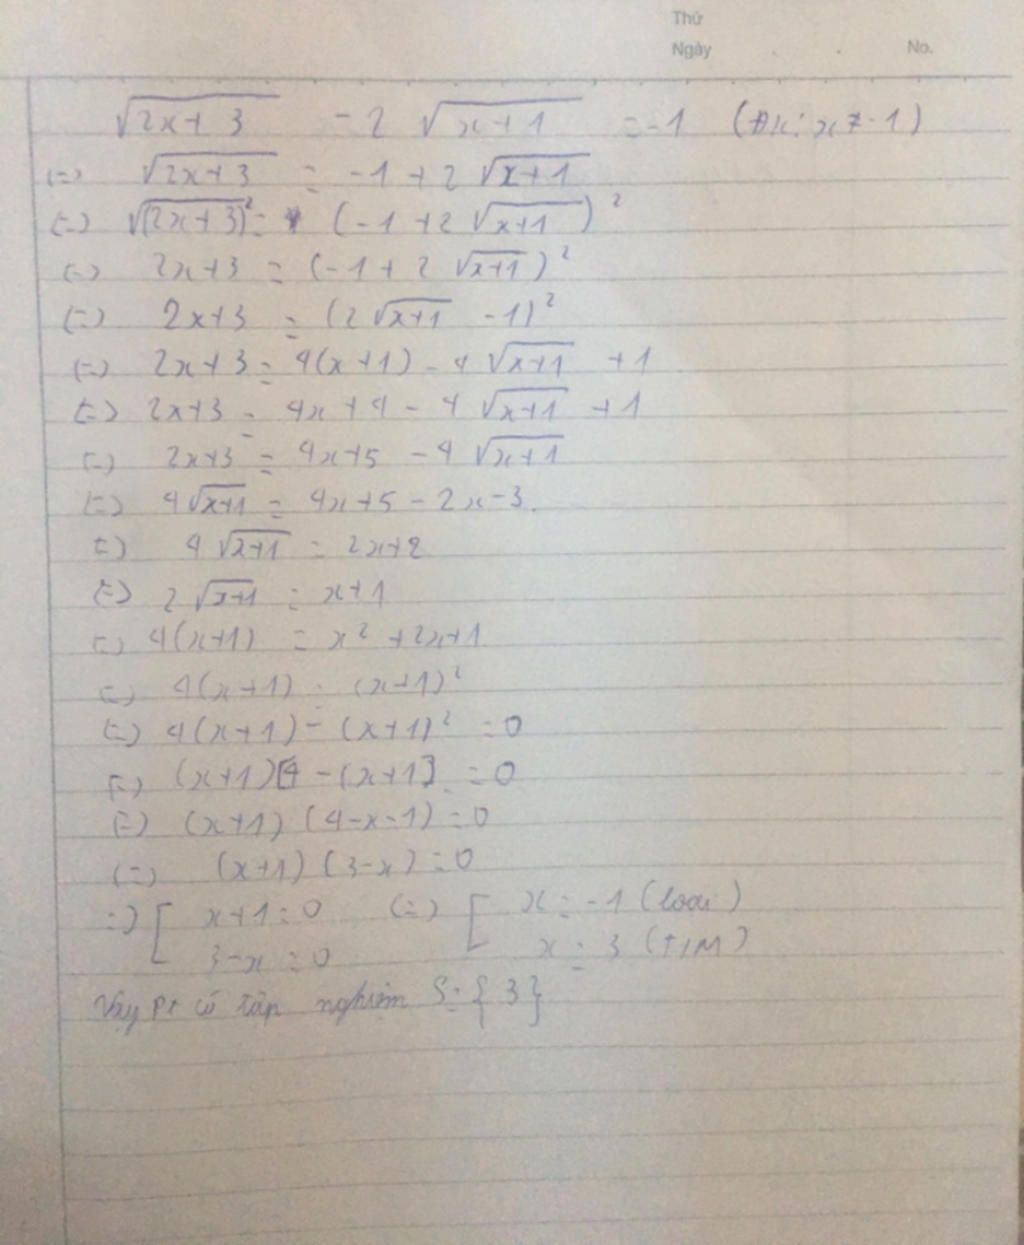 Thứ
Ngày No.
√(2x+3) - 2√(x+1) = -1 (ĐK: x ≠ -1)
(=) √(2x+3) = -1 + 2√(x+1)
(=) √(2x+3)² = (-1 + 2√(x+1))²
(=) 2x+3 = (-1 + 2√(x+1))²
(=) 2x+3 = (2√(x+1) - 1)²
(=) 2x+3 = 4(x+1) - 4√(x+1) + 1
(=) 2x+3 = 4x+4 - 4√(x+1) + 1
(=) 2x+3 = 4x+5 - 4√(x+1)
(=) 4√(x+1) = 4x+5-2x-3.
(=) 4√(x+1) = 2x+2
(=) 2√(x+1) = x+1
(=) 4(x+1) = x²+2x+1
(=) 4(x+1) = (x+1)²
(=) 4(x+1) - (x+1)² = 0
(=) (x+1)[4-(x+1] = 0
(=) (x+1)(4-x-1) = 0
(=) (x+1)(3-x) = 0
=) [ x+1=0 (=) [ x = -1 (loại)
3-x=0 x = 3 (T/M)
Vậy Pt có tập nghiệm S = {3}